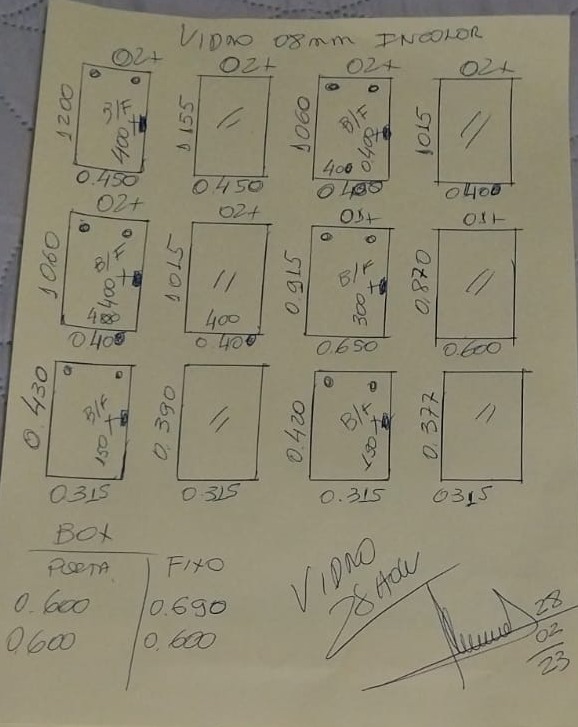 VIDRO 08mm INCOLOR
02+ 02+ 02+ 02+
1200 B/F 400 1155 1060 B/F 0.400 400 1015
0.450 0.450 0.400 0.400
02+ 02+ 01+ 01+
1060 B/F 400 400 1015 400 0.915 B/F 300 0.870
0.400 0.400 0.650 0.600
0.430 B/F 150 0.390 0.420 B/F 150 0.377
0.315 0.315 0.315 0315
BOX
PORTA FIXO
0.600 0.690
0.600 0.600
VIDRO
28
28
02
23